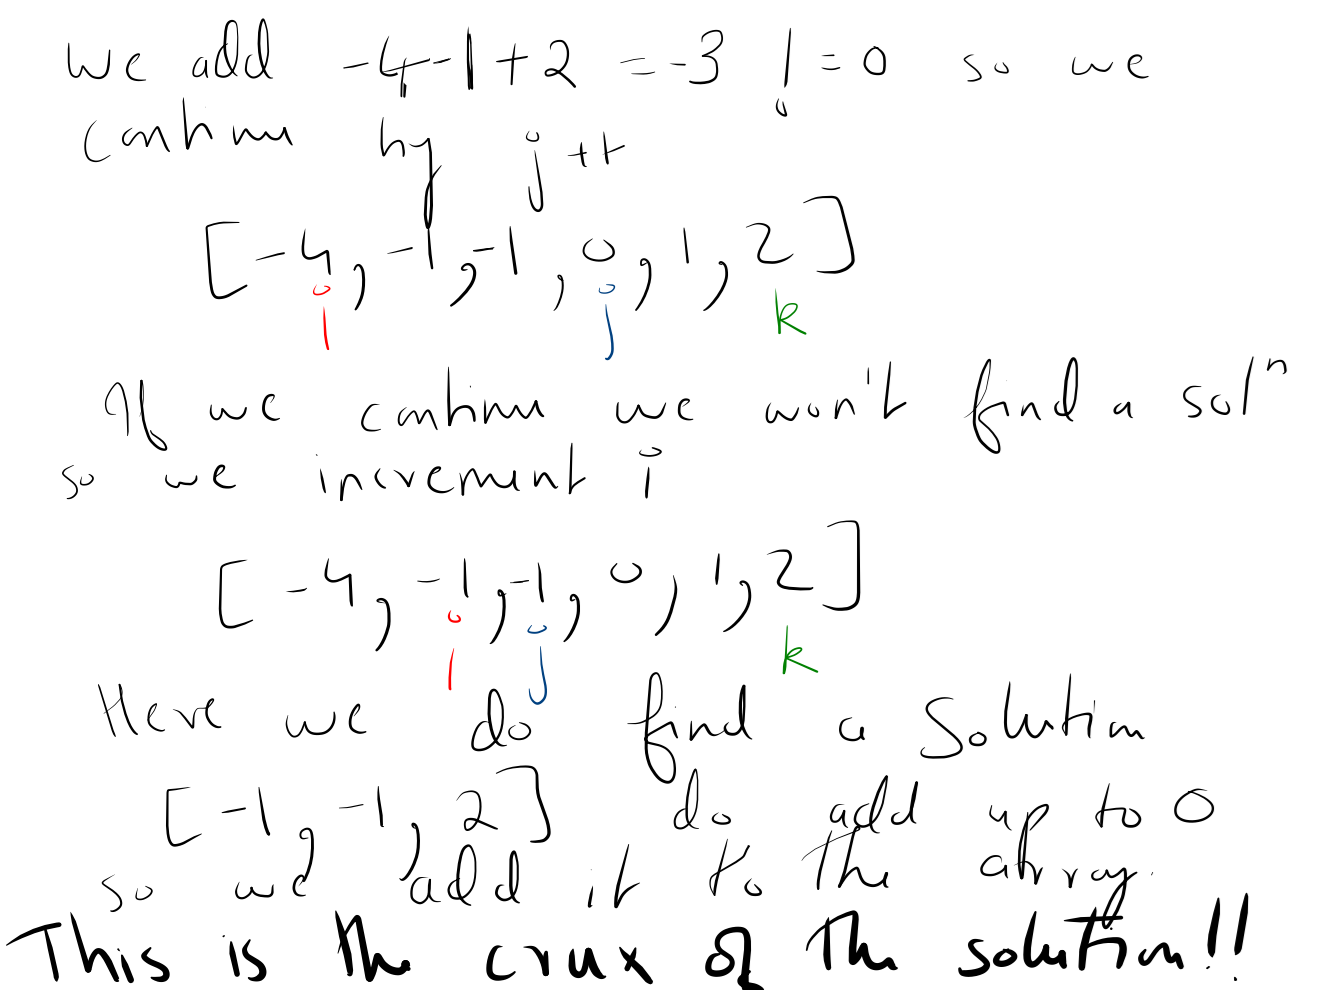 We add -4-1+2 =-3 != 0 so we
continue by j++
[-4, -1, -1, 0, 1, 2]
i j k
If we continue we won't find a solⁿ
so we increment i
[-4, -1, -1, 0, 1, 2]
i j k
Here we do find a solution
[-1, -1, 2] do add up to 0
so we add it to the array.
This is the crux of the solution!!